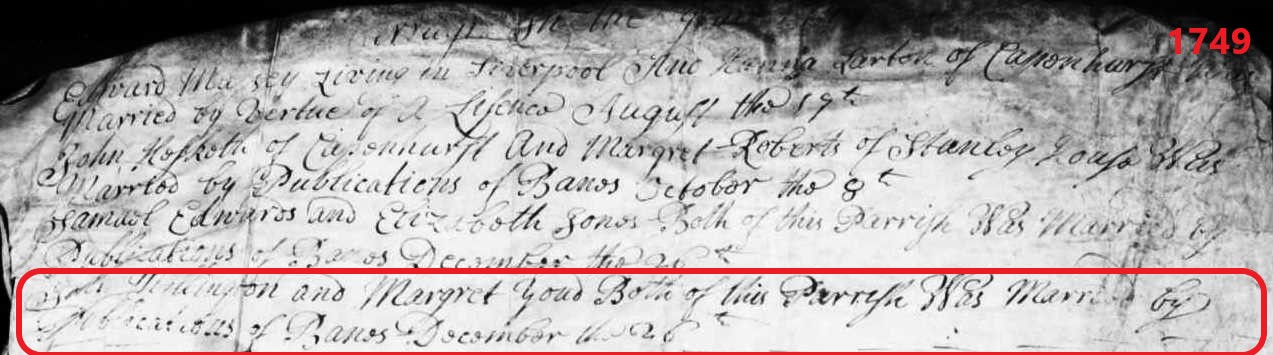 in the year
1749
Edward Massey Living in Liverpool And Hanna Larton of Capenhurst Was
Married by Vertue of A Lisence August the 19th
John Hesketh of Capenhurst And Margret Roberts of Stanley House Was
Married by Publications of Banes October the 8t
Samuel Edwards and Elizabeth Jones Both of this Parrish Was Married by
Publications of Banes December the 26t
and Margret Youd Both of this Parrish Was Married by
Publications of Banes December the 26t